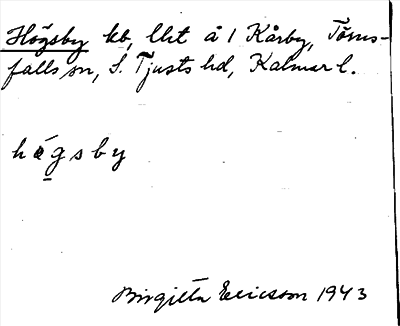 Högsby kb, lht å 1 Kårby, Törns-
falls sn, S. Tjusts hd, Kalmar l.
högsby
Birgitta Ericsson 1943